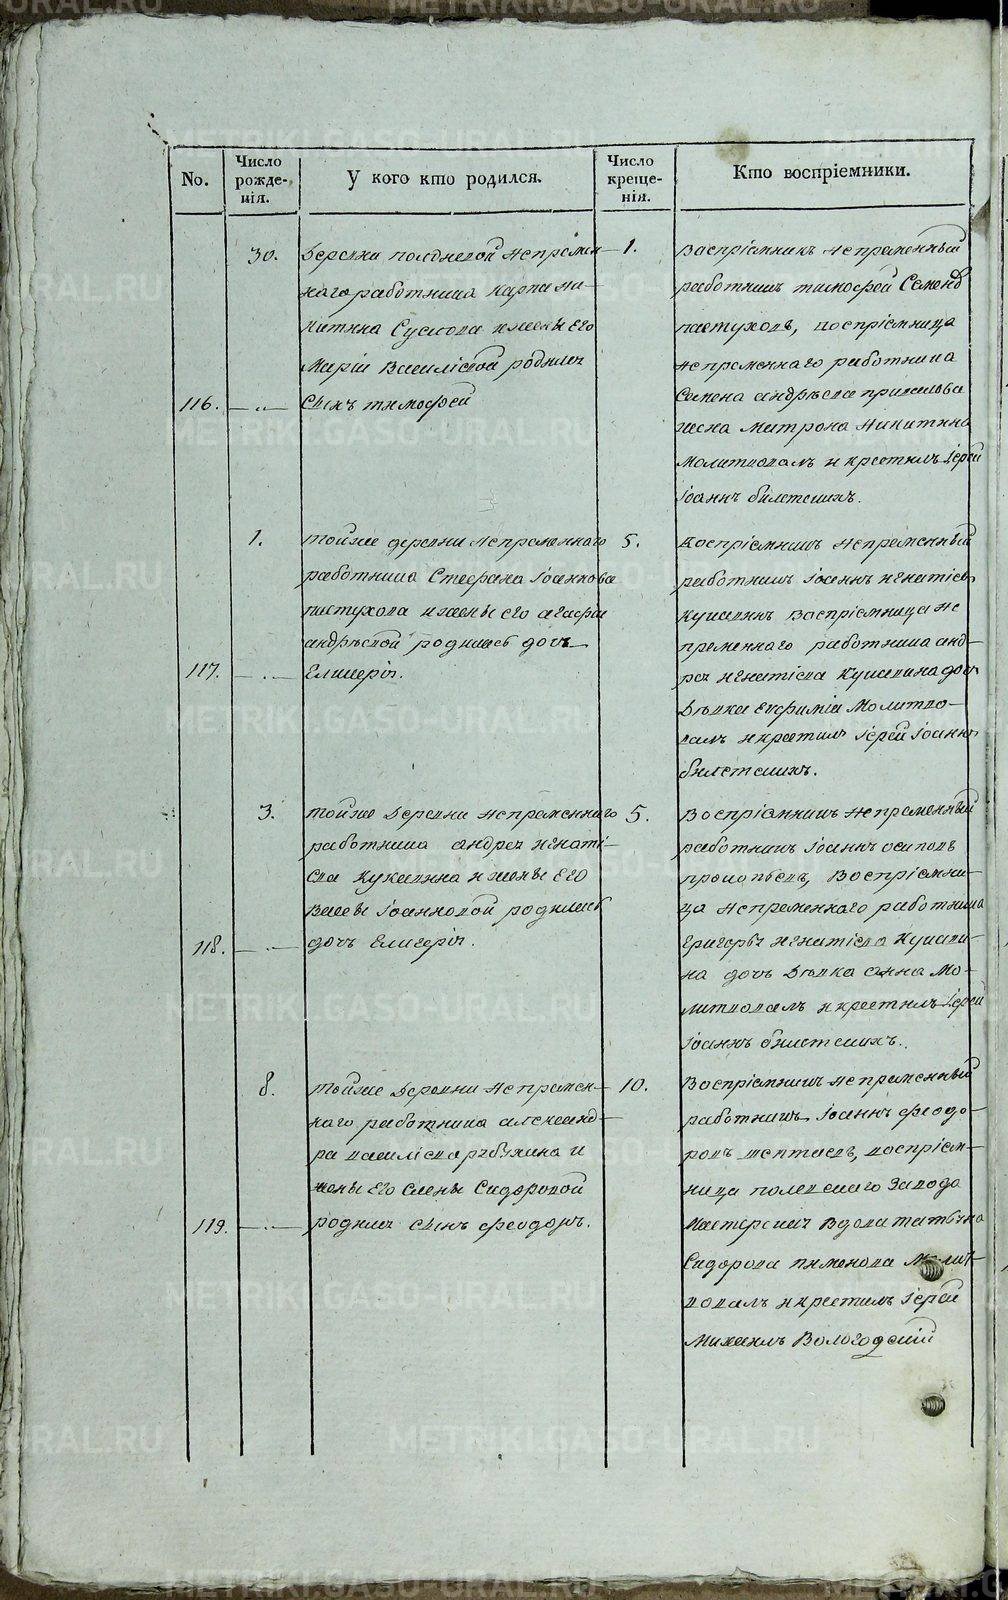 No.
Число рожде- нія.
У кого кто родился.
Число креще- нія.
Кто воспріемники.
116.
30.
Деревни полдневой непремен-
наго работника Карпа Ни-
китина Суслова и жены его
Маріи Василіевой родился
сынъ тимофей
1.
Воспріемникъ непременный
работникъ тимофей Семено
пастуховъ, воспріемница
непременнаго работника
Семена андрѣева
жена Матрона Никитина
Молитвовалъ и крестилъ Іерей
Іоаннъ
117.
1.
тойже деревни непременнаго
работника Стефана Іоаннова
пастухова и жены его агафіи
андрѣевой родилась дочь
Гликерія.
5.
воспріемникъ непременный
работникъ Іоаннъ игнатіев
Кукаринъ Воспріемница не
пременнаго работника анд-
рея игнатіева Кукарина доч
Дѣвка Евфимія Молитво-
валъ и крестилъ Іерей Іоаннъ
118.
3.
тойже Деревни непременнаго
работника андрея игнаті-
ева Кукарина и жены Его
Іоанновой родилась
дочь Гликерія.
5.
Воспріемникъ непременный
работникъ Іоаннъ осиповъ
прокопьевъ, Воспріемни-
ца непременнаго работника
Григорья игнатіева Кукари-
на дочь Дѣвка анна Мо-
литвовалъ и крестилъ Іерей
Іоаннъ
119.
8.
тойже Деревни непремен-
наго работника александ-
ра василіева рябухина и
жены Его Елены Сидоровой
родился сынъ феодоръ.
10.
Воспріемникъ непременный
работникъ Іоаннъ феодо-
ровъ воспріем-
ница полевскаго завода
Мастерская Вдова татьяна
Сидорова пименова Молит-
вовалъ и крестилъ Іерей
Михаилъ Вологодскій
METRIKI.GASO-URAL.RU